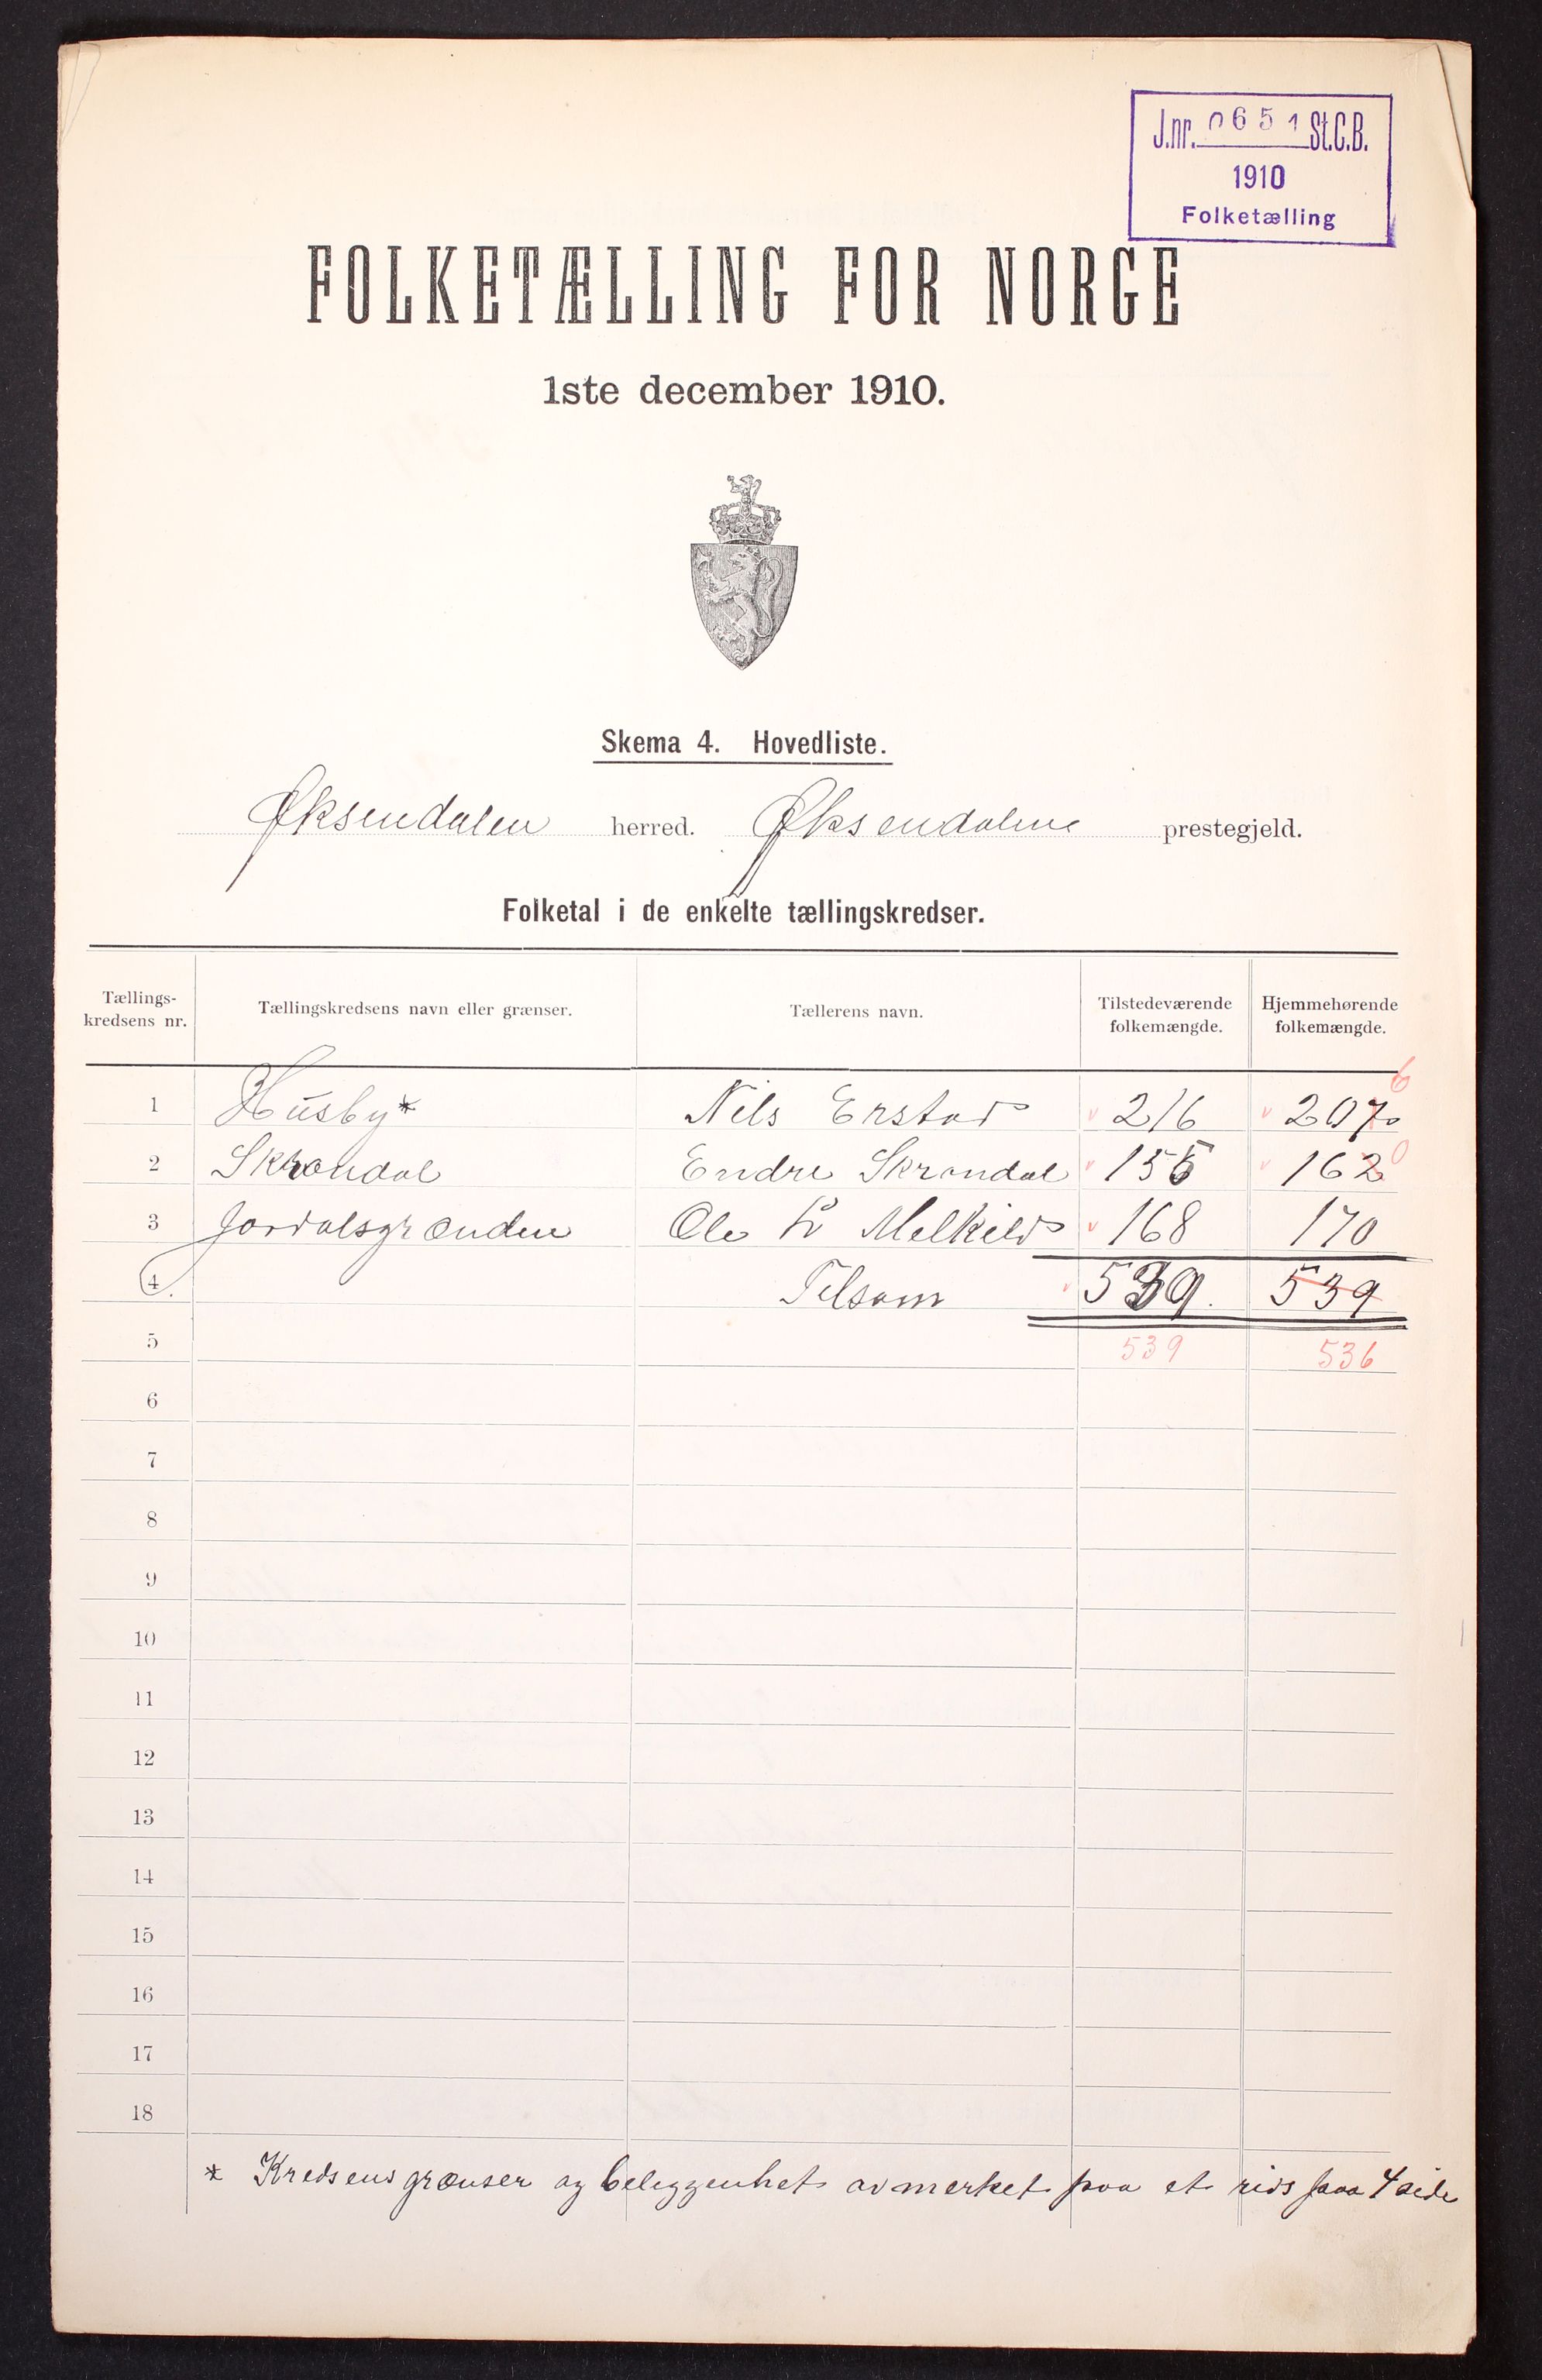 J.nr. 0651 St.C.B.
1910
Folketælling
FOLKETÆLLING FOR NORGE
1ste december 1910.
Skema 4. Hovedliste.
Øksendalen herred. Øksendalens prestegjeld.
Folketal i de enkelte tællingskredser.
Tællings-
kredsens nr.
Tællingskredsens navn eller grænser.
Tællerens navn.
Tilstedeværende
folkemængde.
Hjemmehørende
folkemængde.
1 Husby* Nils Erstad 216 207 6
2 Skrondal Endre Skrondal 155 162 0
3 Jordalsgrænden Ole Melkild 168 170
4 Tilsam 539. 539
5 539 536
6
7
8
9
10
11
12
13
14
15
16
17
18
* Kredsens grænser og beliggenhet avmerket paa et rids paa 4 side